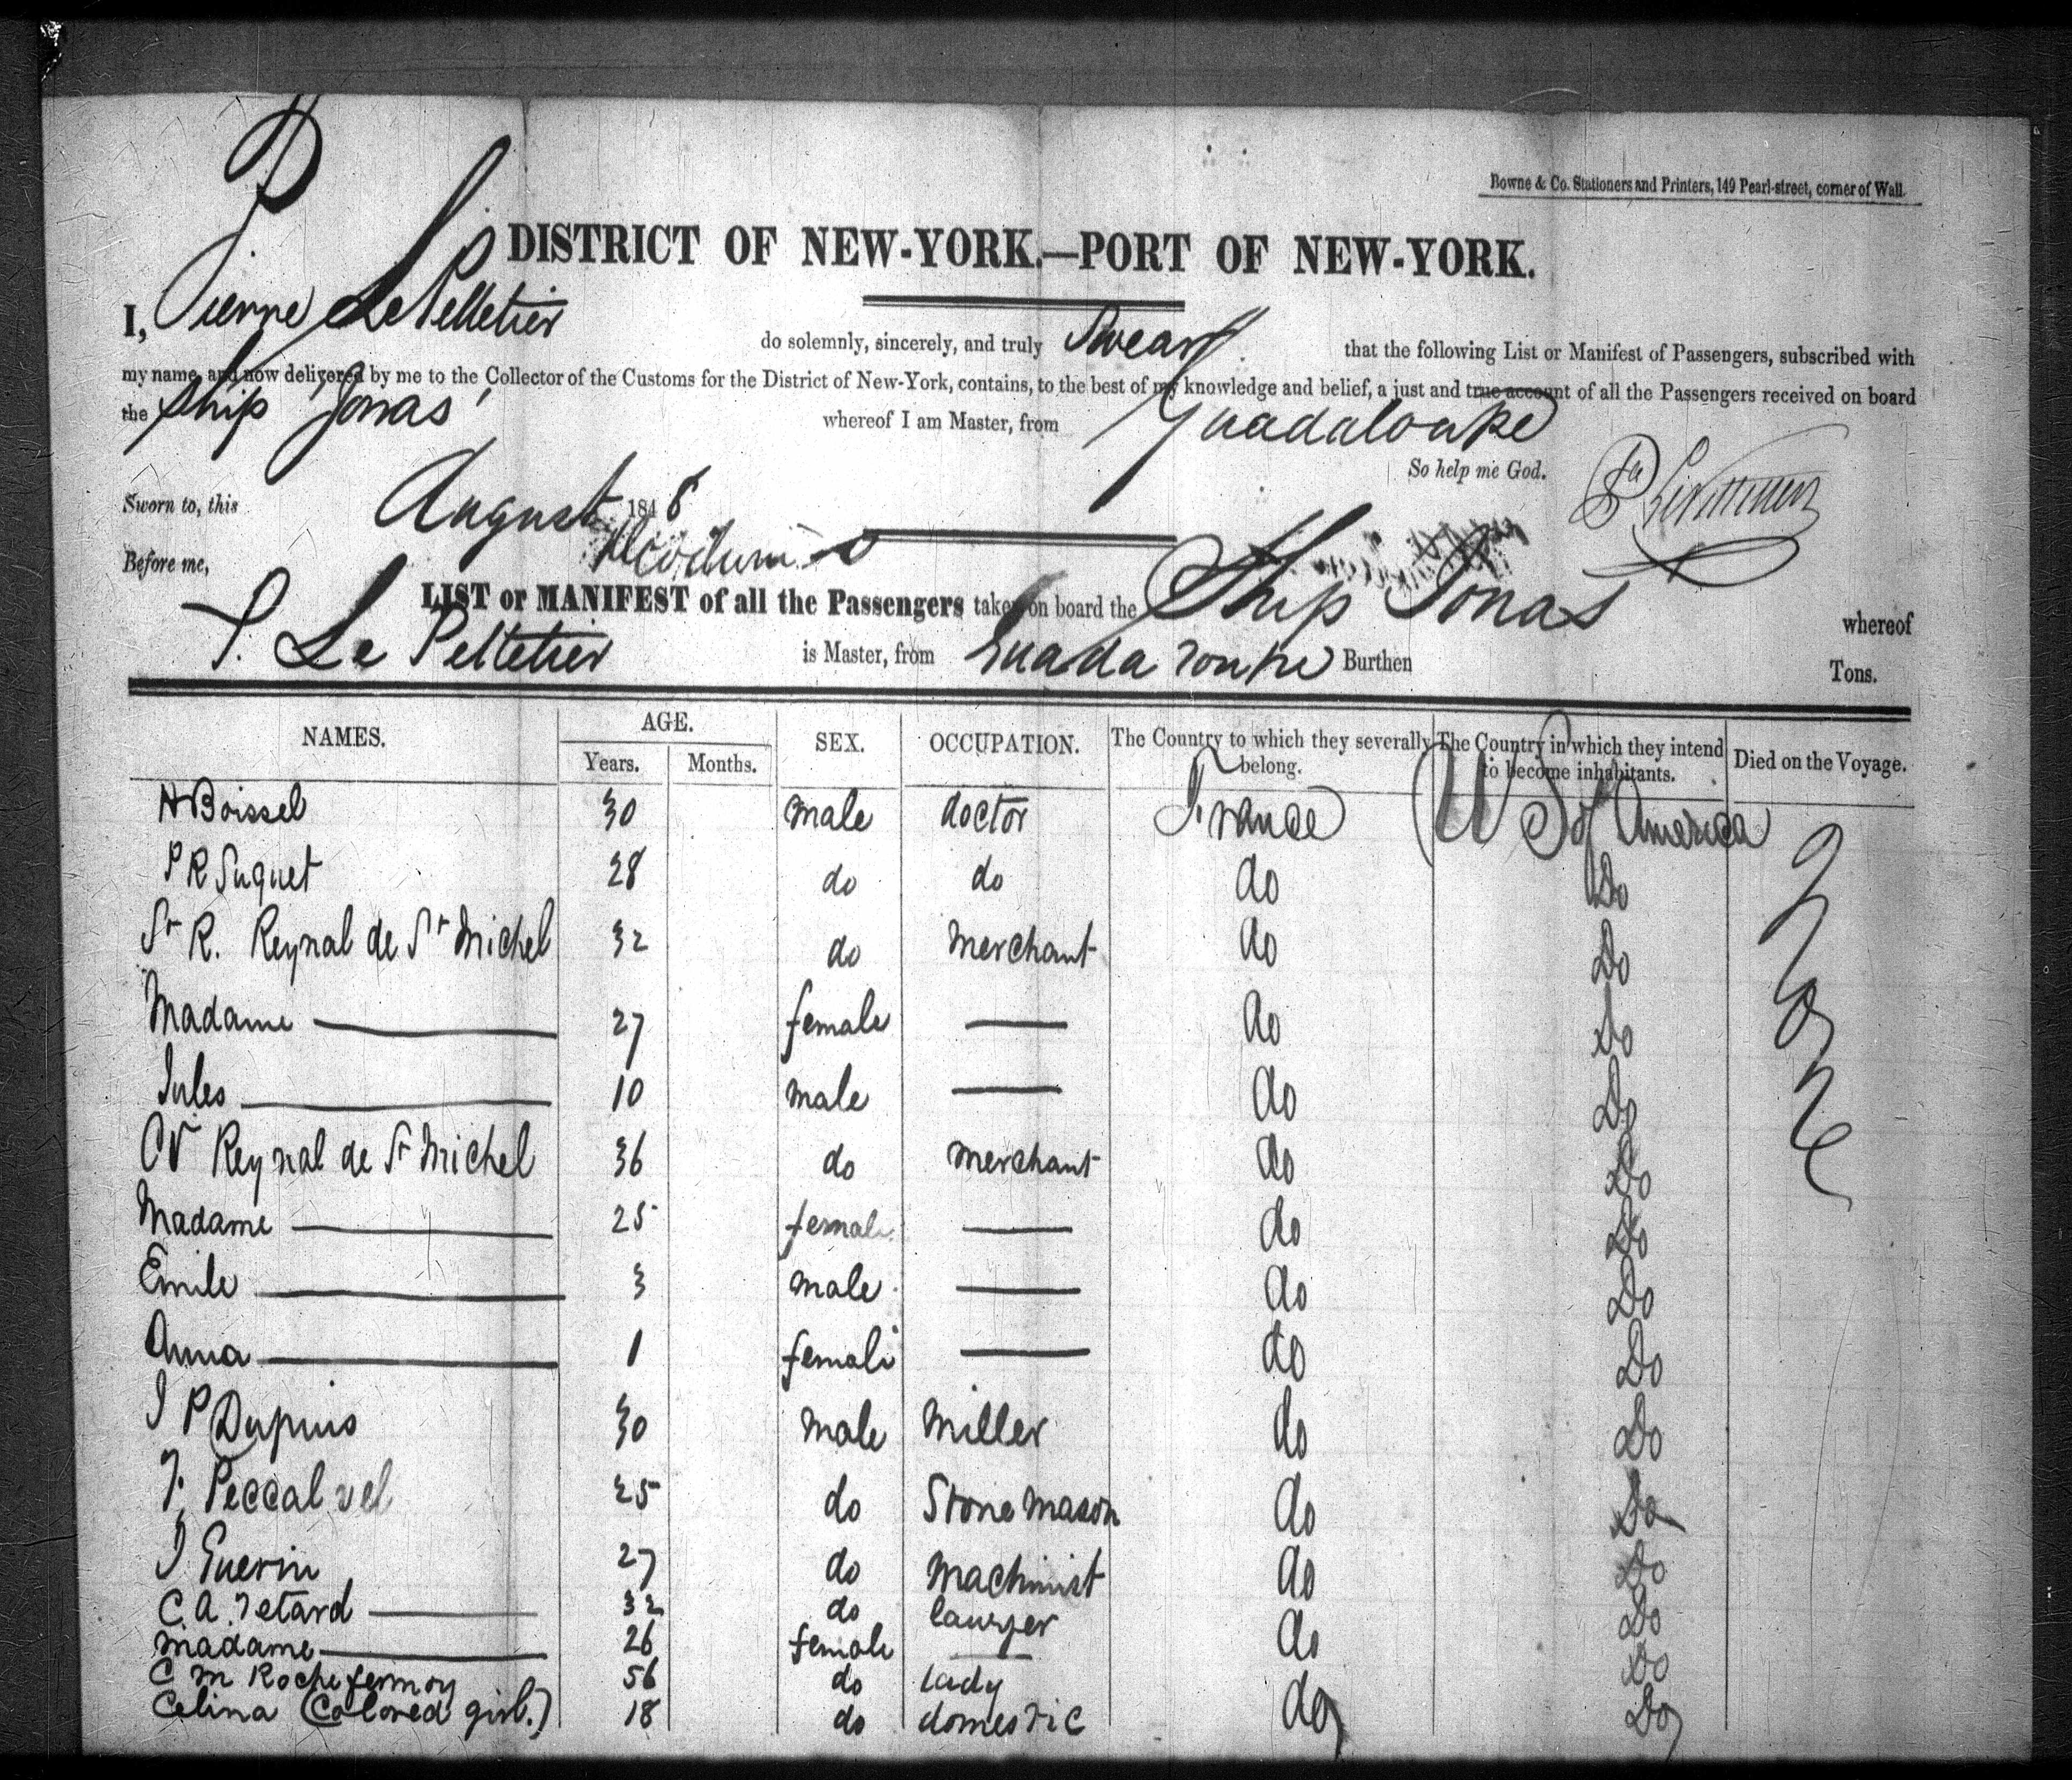 Bowne & Co. Stationers and Printers, 149 Pearl-street, corner of Wall.
DISTRICT OF NEW-YORK.—PORT OF NEW-YORK.
I, Pierre Le Pelletier do solemnly, sincerely, and truly Swear that the following List or Manifest of Passengers, subscribed with
my name, and now delivered by me to the Collector of the Customs for the District of New-York, contains, to the best of my knowledge and belief, a just and true account of all the Passengers received on board
the Ship Jonas whereof I am Master, from Guadaloupe
So help me God.
Sworn to, this August 1848
Before me,
LIST or MANIFEST of all the Passengers taken on board the Ship Jonas whereof
P. Le Pelletier is Master, from Guadaloupe Burthen Tons.
NAMES. AGE. Years. Months. SEX. OCCUPATION. The Country to which they severally belong. The Country in which they intend to become inhabitants. Died on the Voyage.
H Boissel 30 male doctor France U S of America None
P R Suquet 28 do do do Do
St R. Reynal de St Michel 32 do merchant do Do
Madame — 27 female — do Do
Jules — 10 male — do Do
CV Reynal de St Michel 36 do merchant do Do
Madame — 25 female — do Do
Emile — 3 male — do Do
Anna — 1 female — do Do
J P Dupuis 30 male Miller do Do
F. Peccalvel 25 do Stone Mason do Do
J Guerin 27 do Machinist do Do
C. A. Tetard — 32 do lawyer do Do
Madame — 26 female — do Do
C M Rochefermoy 56 do lady
Celina (Colored girl.) 18 do domestic do Do